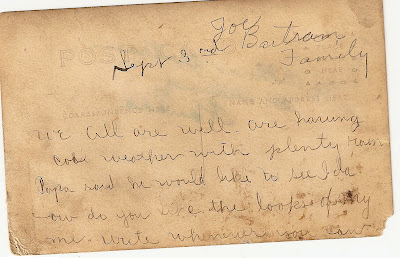 Joe
Bartram
Family
POST
Sept 3rd
CORRESPONDENCE HERE
NAME AND ADDRESS HERE
We all are well. are having
cool weather with plenty rain
Papa said he would like to see Ida
ow do you like the looks of my
me. write whenever you can